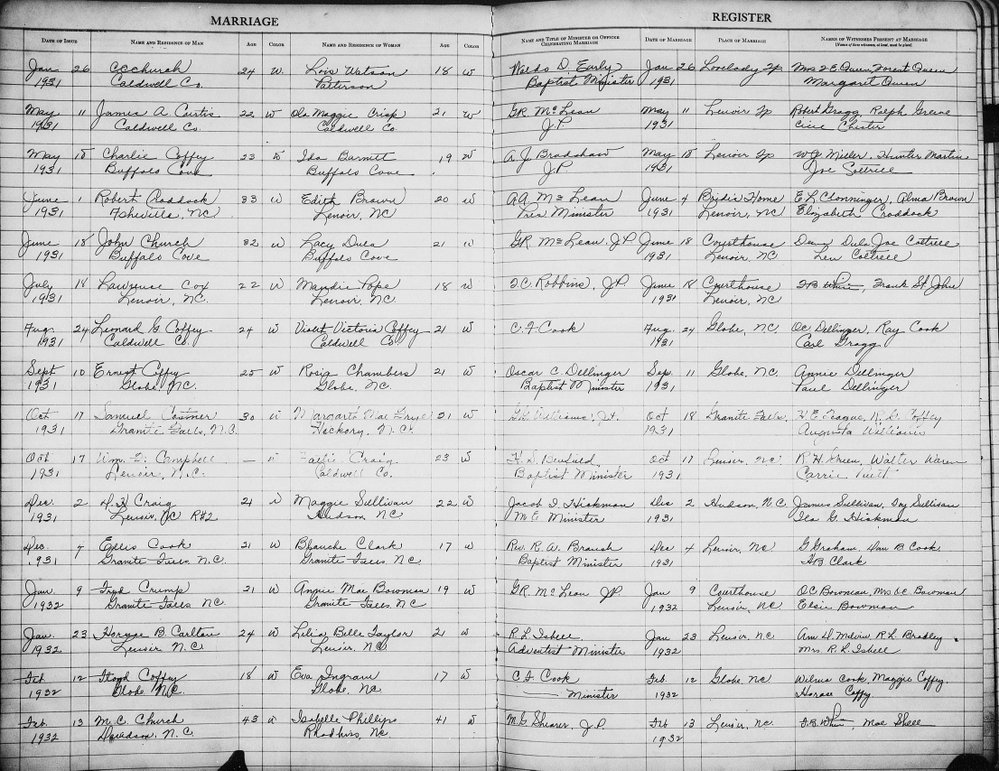 MARRIAGE REGISTER
DATE OF ISSUE NAME AND RESIDENCE OF MAN AGE COLOR NAME AND RESIDENCE OF WOMAN AGE COLOR NAME AND TITLE OF MINISTER OR OFFICER CELEBRATING MARRIAGE DATE OF MARRIAGE PLACE OF MARRIAGE NAMES OF WITNESSES PRESENT AT MARRIAGE
Jan 26 CC Church 24 W Lois Watson 18 W Waldo D. Early Jan 26 Lovelady Tp Mrs Owen
1931 Caldwell Co. Patterson Baptist Minister 1931 Margaret Owen
May 11 James A Curtis 22 W Ola Maggie Crisp 21 W GR. McLean May 11 Lenoir Tp Robert Gragg Ralph Greene
1931 Caldwell Co Caldwell Co JP 1931 Chester
May 18 Charlie Coffey 23 W Ida Barnett 19 W A J Bradshaw May 18 Lenoir Tp Miller, Hunter Martin
1931 Buffalo Cove Buffalo Cove JP 1931 Joe
June 1 Robert Craddock 33 W Edith Brown 20 W AA McLean June 4 Brides Home E L Clonninger, Alma Brown
1931 Asheville, NC Lenoir, NC Pres Minister 1931 Lenoir, NC Elizabeth Craddock
June 18 John Church 32 W Lacy Dula 21 W GR. McLean, JP June 18 Courthouse Dula Joe Cottrell
1931 Buffalo Cove Buffalo Cove 1931 Lenoir, NC Lew Cottrell
July 18 Lawrence Cox 22 W Mandie Pope 18 W Robbins, JP June 18 Courthouse Frank St John
1931 Lenoir, NC Lenoir, NC 1931 Lenoir, NC
Aug. 24 Leonard G Coffey 24 W Violet Victoria Coffey 21 W C. F Cook Aug. 24 Globe, NC OC Dellinger, Ray Cook
1931 Caldwell Co. Caldwell Co. 1931 Carl Gragg
Sept 10 Ernest Coffey 25 W Rosia Chambers 21 W Oscar C. Dellinger Sep. 11 Globe, NC. Annie Dellinger
1931 Globe NC. Globe, NC Baptist Minister 1931 Paul Dellinger
Oct 17 Samuel Costner 30 W 21 W Williams, J.P. Oct 18 Granite Falls, H E Teague, Coffey
1931 Granite Falls, N.C. Hickory, N.C. 1931 Augusta Williams
Oct 17 Wm. Campbell — W Craig 23 W Oct 17 Lenoir, NC R H Green, Walter
1931 Lenoir, N.C. Caldwell Co. Baptist Minister 1931 Carrie
Dec. 2 Craig 21 W Maggie Sullivan 22 W Jacob I. Hickman Dec 2 Hudson, N.C. James Sullivan, Sullivan
1931 Lenoir, NC R#2 Hudson NC M.E Minister 1931 Ila G. Hickman
Dec. 7 Ellis Cook 21 W Blanche Clark 17 W Rev. R. A. Dec 4 Lenoir, NC G Graham, Dan B Cook
1931 Granite Falls, N.C. Granite Falls, NC Baptist Minister 1931 Clark
Jan. 9 Fred Crump 21 W Annie Mae Bowman 19 W GR. McLean JP. Jan 9 Courthouse OC Bowman, Mrs OC Bowman
1932 Granite Falls NC. Granite Falls, NC 1932 Lenoir, NC Elsie Bowman
Jan. 23 B. Carlton 24 W Lelia Belle Taylor 21 W R L Isbell Jan 23 Lenoir, NC R L Bradley
1932 Lenoir N.C Lenoir, N.C Adventist Minister 1932 Mrs. R. L Isbell
Feb 12 Floyd Coffey 18 W Eva Ingram 17 W C. F. Cook Feb. 12 Globe NC Wilma Cook, Maggie Coffey
1932 Globe NC. Globe, NC Minister 1932 Horace Coffey
Feb. 13 M.C. Church 43 W Isabelle Phillips 41 W M.C. Shearer, J.P. Feb 13 Lenoir, NC Mae Shell
1932 N.C. Rhodhiss, NC 1932